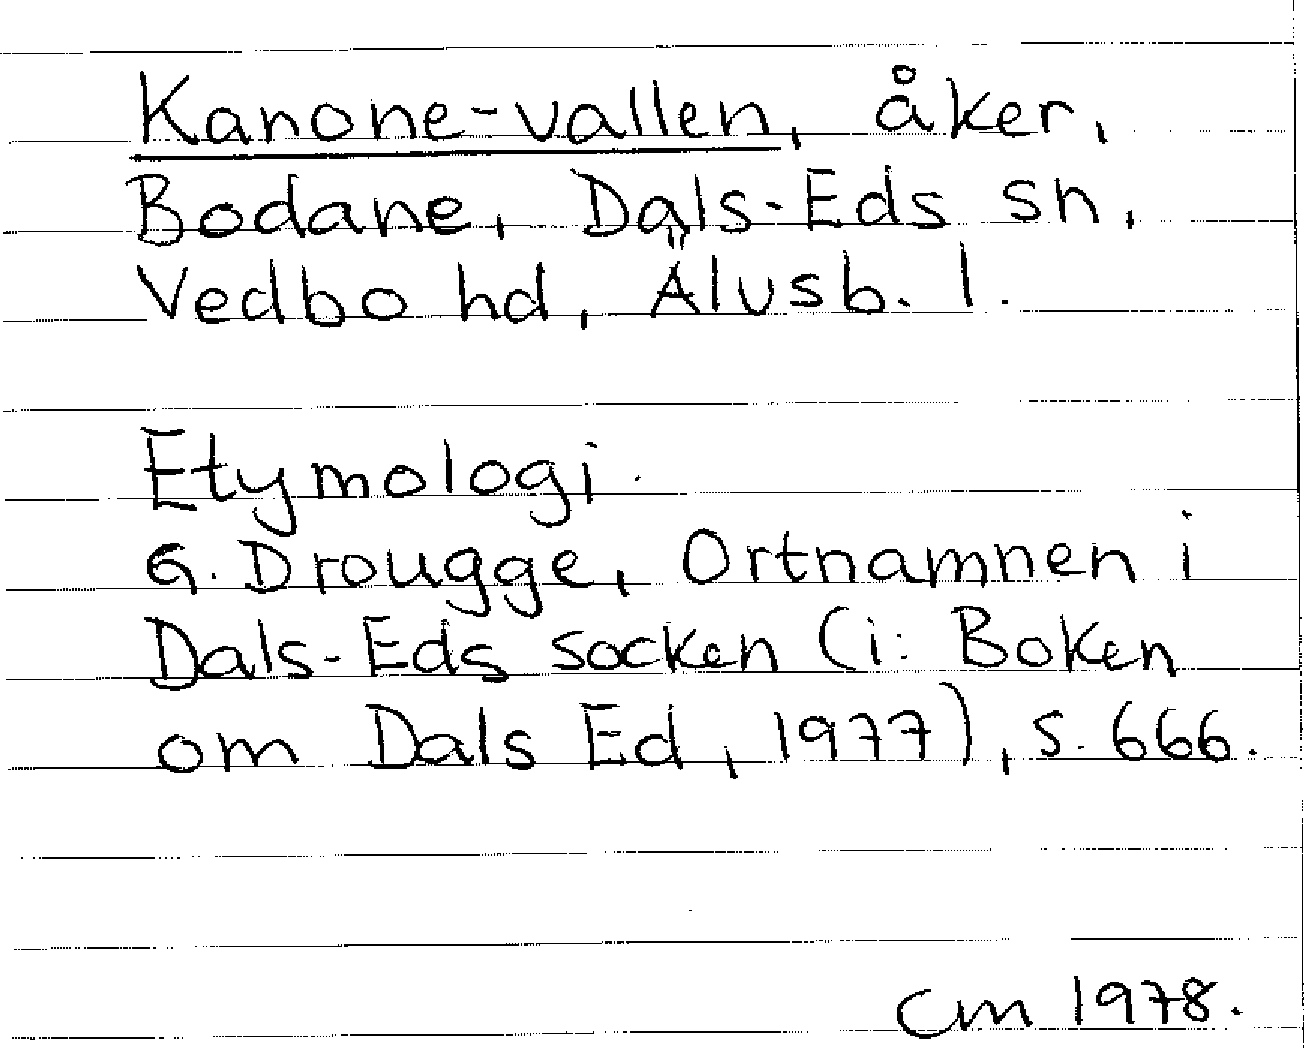 Kanone-vallen, åker,
Bodane, Dals-Eds sn,
Vedbo hd, Älvsb. l.
Etymologi.
G. Drougge, Ortnamnen i
Dals-Eds socken (i: Boken
om Dals Ed, 1977), s. 666.
CM 1978.